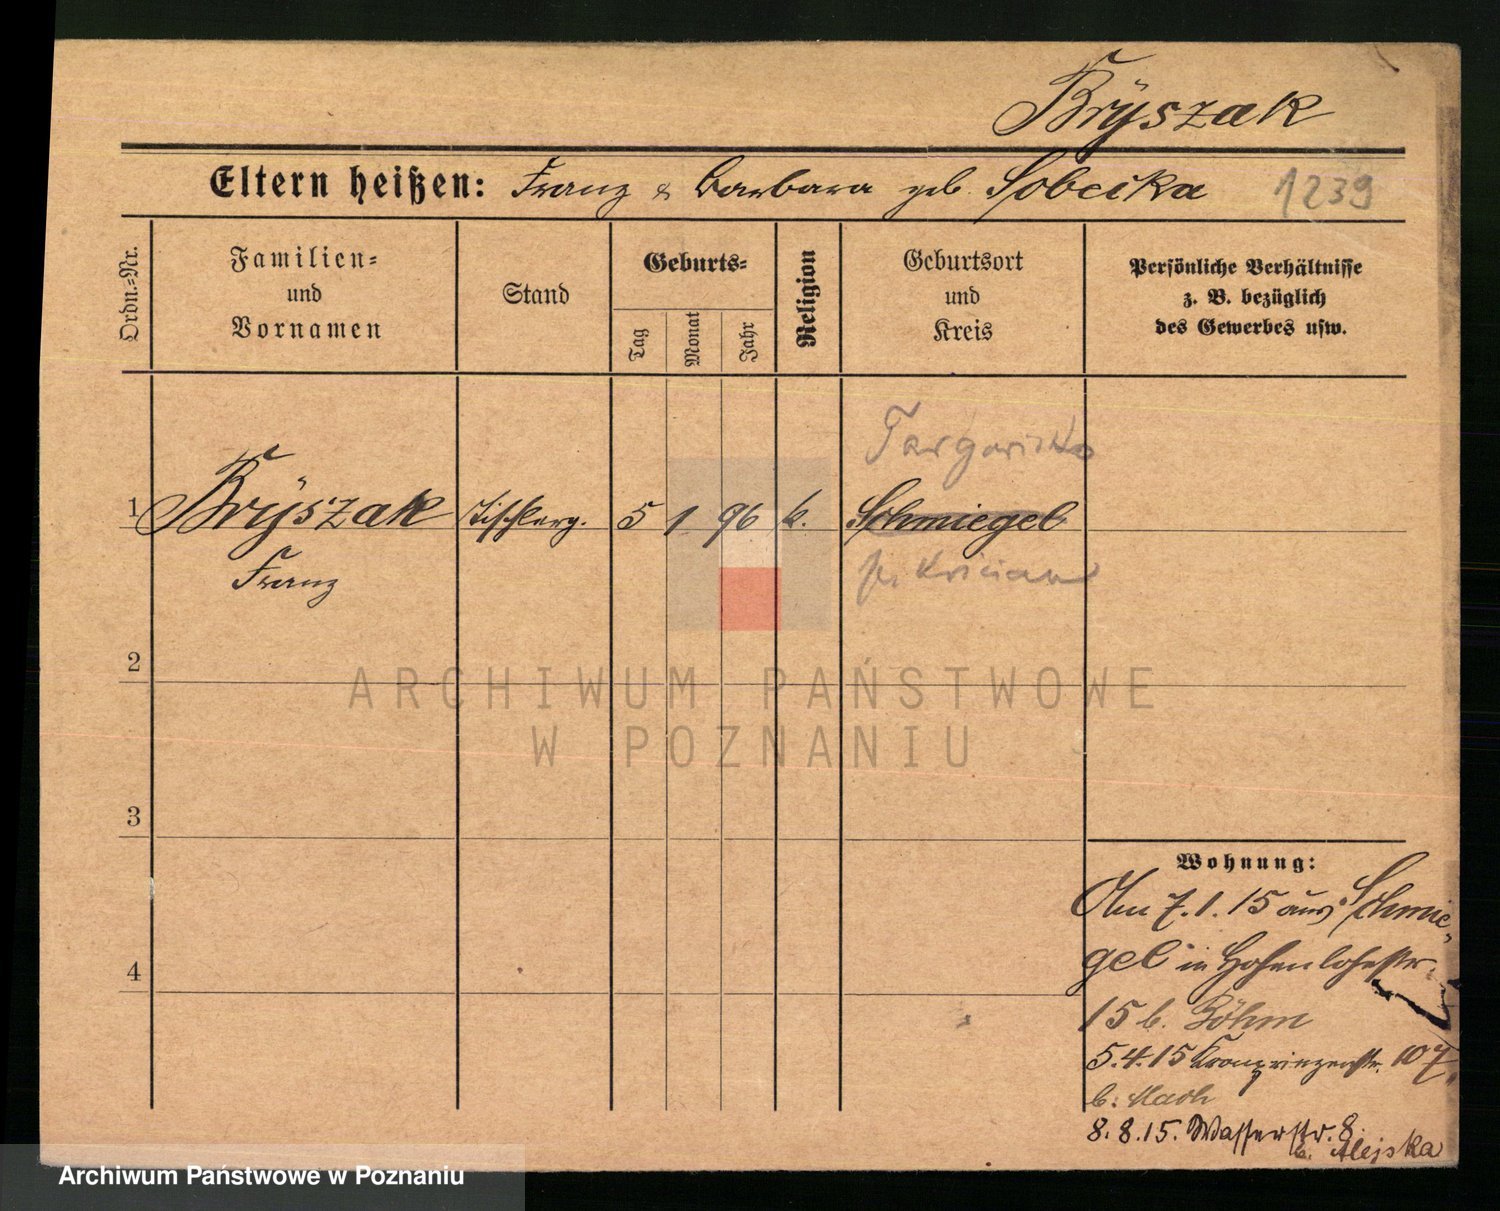 Brÿszak
Eltern heißen: Franz & Barbara geb. Sobecka 1239
Ordn.-Nr.
Familien-
und
Vornamen
Stand
Geburts-
Tag
Monat
Jahr
Religion
Geburtsort
und
Kreis
Persönliche Verhältnisse
z. B. bezüglich
des Gewerbes usw.
1 Brÿszak Tischlerg. 5 1 96 k. Schmiegel
Franz
2
3
4
ARCHIWUM PAŃSTWOWE
W POZNANIU
Wohnung:
7.1.15 aus Schmie-
gel in Hohenlohestr.
15 b. Böhm
5.4.15 Kronprinzenstr. 107
b.
8.8.15. Wasserstr. 8.
b.
Archiwum Państwowe w Poznaniu